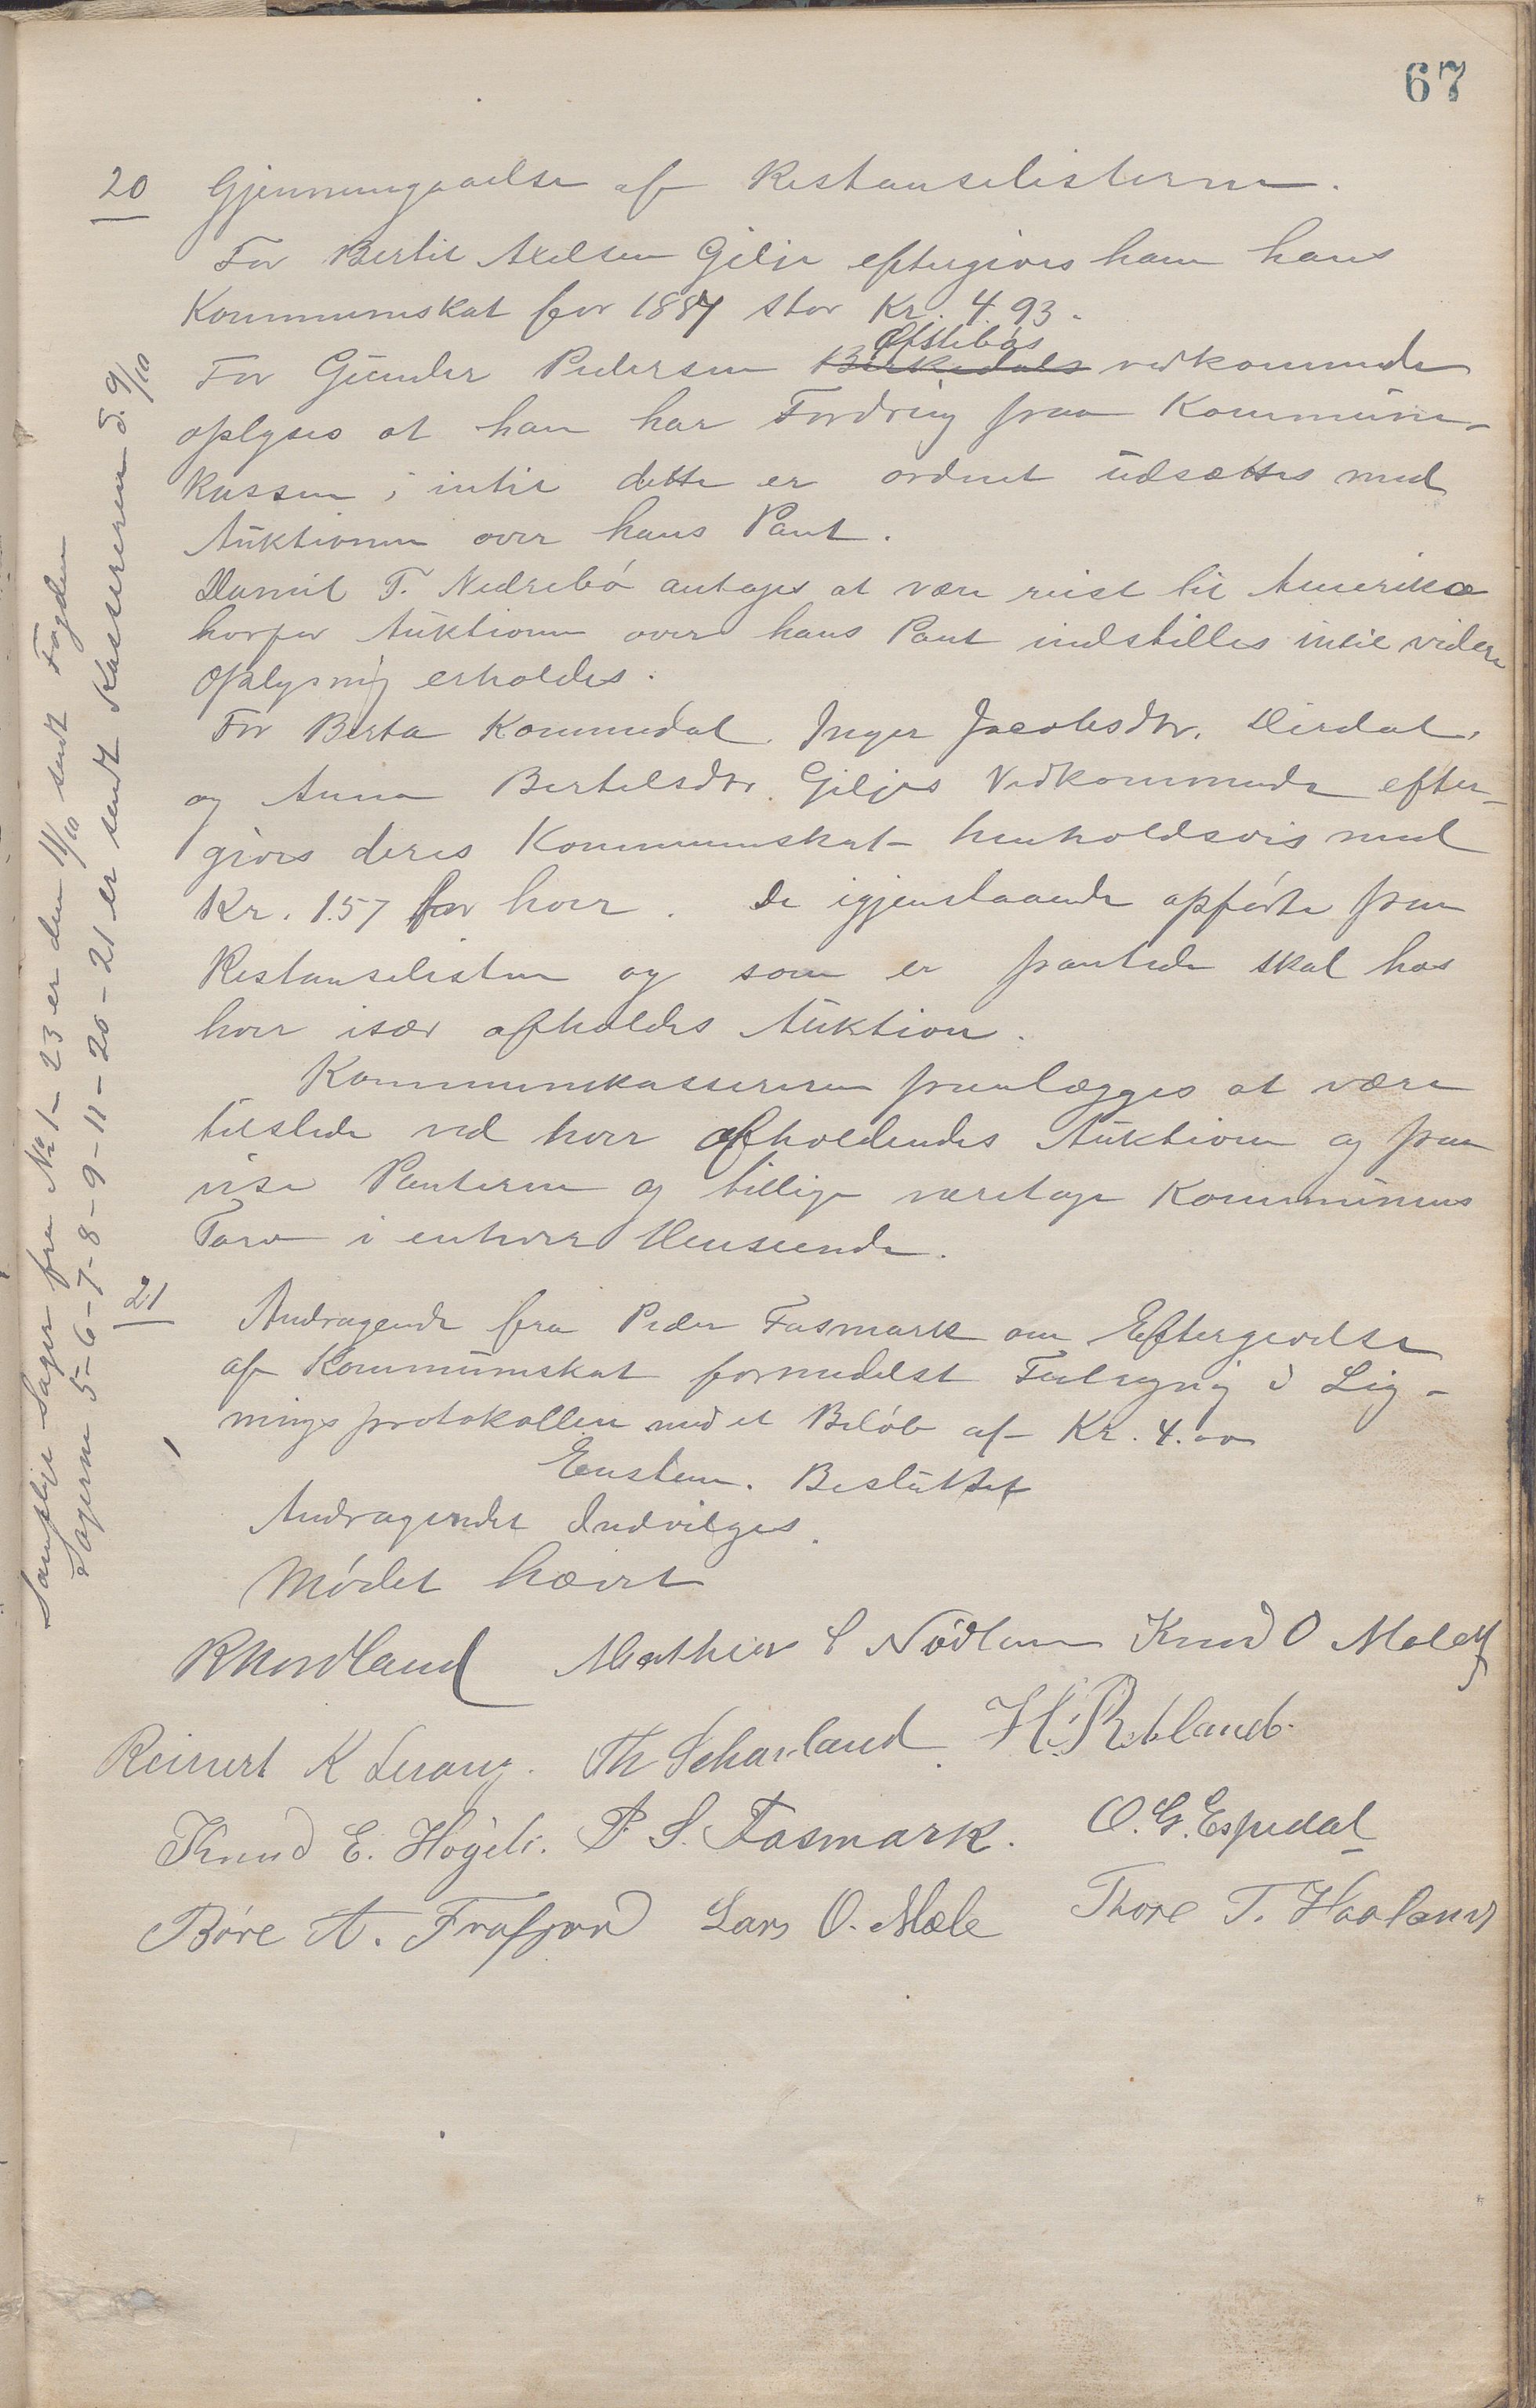 67
20 Gjennemgaaelse af Restanselisterne.
For Bertil Axelsen Gilje eftergives ham hans
Kommuneskat for 1887 stor Kr. 4.93.
Øfstebøs
For Gunder Pedersen Birkedals vedkommende
oplyses at han har Fordring paa Kommune-
kassen, intil dette er ordnet udsættes med
Auktionen over hans Pant.
Daniel T. Nedrebø antages at være reist til Amerika
hvorfor Auktionen over hans Pant indstilles intil videre
Oplysning erholdes.
For Berta Kommedal, Inger Jacobsdtr. Dirdal,
og Anna Bertelsdtr. Giljes Vedkommende efter-
gives deres Kommuneskat henholdsvis med
Kr. 1.57 for hver. De igjenstaaende opførte paa
Restanselisten og som er pantede skal hos
hver især afholdes Auktion.
Kommunekassereren paalægges at være
tilstede ved hver afholdendes Auktion og paa
vise Panterne og tillige varetage Kommunens
Tarv i enhver Henseende.
21 Andragende fra Peder Fasmark om Eftergivelse
af Kommuneskat formedelst Feilregning i Lig-
ningsprotokollen med et Beløb af Kr. 4.00
Enstem. Besluttet
Andragendet Indvilges.
Mødet hævet
R Nordland Mathias S Nødland Knud O Maele
Reinert K Levang. Th Schanland. H. Rebland.
Knud E. Høgeli. P. S. Fasmark. O. G. Espedal
Børe A. Frafjord Lars O. Mæle Thore T. Haaland
Samtlige Sager fra No 1 - 23 er den 11/10 sendt Fogden
Sagerne 5-6-7-8-9-11-20-21 er sendt Kassereren d. 9/10